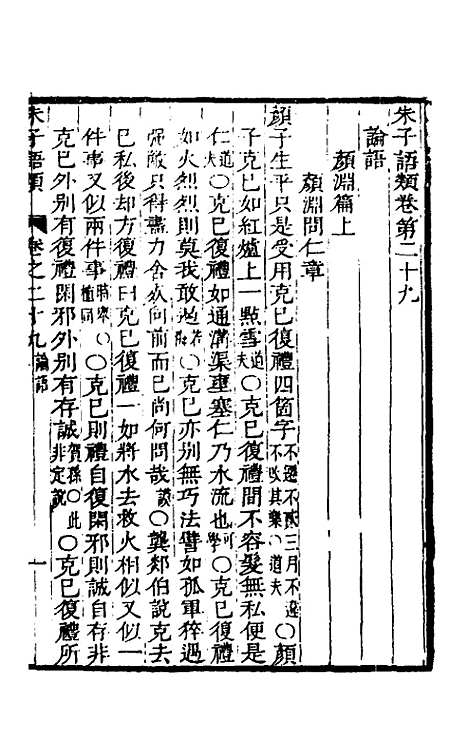 朱子語類卷第二十九
論語
顏淵篇上
顏淵問仁章
顏子生平只是受用克已復禮四箇字不遷不貳三月不違不改其樂道夫〇顏
子克已如紅爐上一點雪道夫〇克已復禮間不容髮無私便是
仁道夫〇克已復禮如通溝渠壅塞仁乃水流也可學〇克已復禮
如火烈烈則莫我敢遏若海〇克已亦别無巧法譬如孤軍猝遇
強敵只得盡力舍死向前而已尚何問哉謨〇龔郯伯說克去
已私後却方復禮曰克已復禮一如將水去救火相似又似一
件事又似兩件事時舉植同〇克已則禮自復閑邪則誠自存非
克已外别有復禮閑邪外别有存誠賀孫此非定說〇克已復禮所
朱子語類 卷之二十九 論語 一